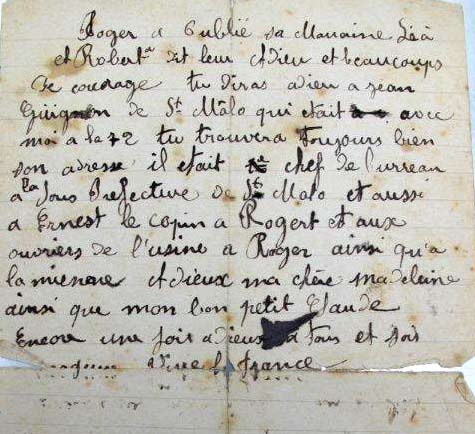 Roger a oublié sa Marraine Léa
et Robert a dit leur Adieu et beaucoups
de courage tu diras adieu a jean
Guignon de St Mâlo qui etait avec
moi a la 72 tu trouvera toujours bien
son adresse il etait chef de burreau
a la Sous Prefecture de St Malo et aussi
a Ernest le copin a Rogert et aux
ouvriers de l'usine a Roger ainsi qu'a
la mienne Adieux ma chère madeleine
ainsi que mon bon petit Claude
Encore une fois adieux a tous et sois
Vive la France